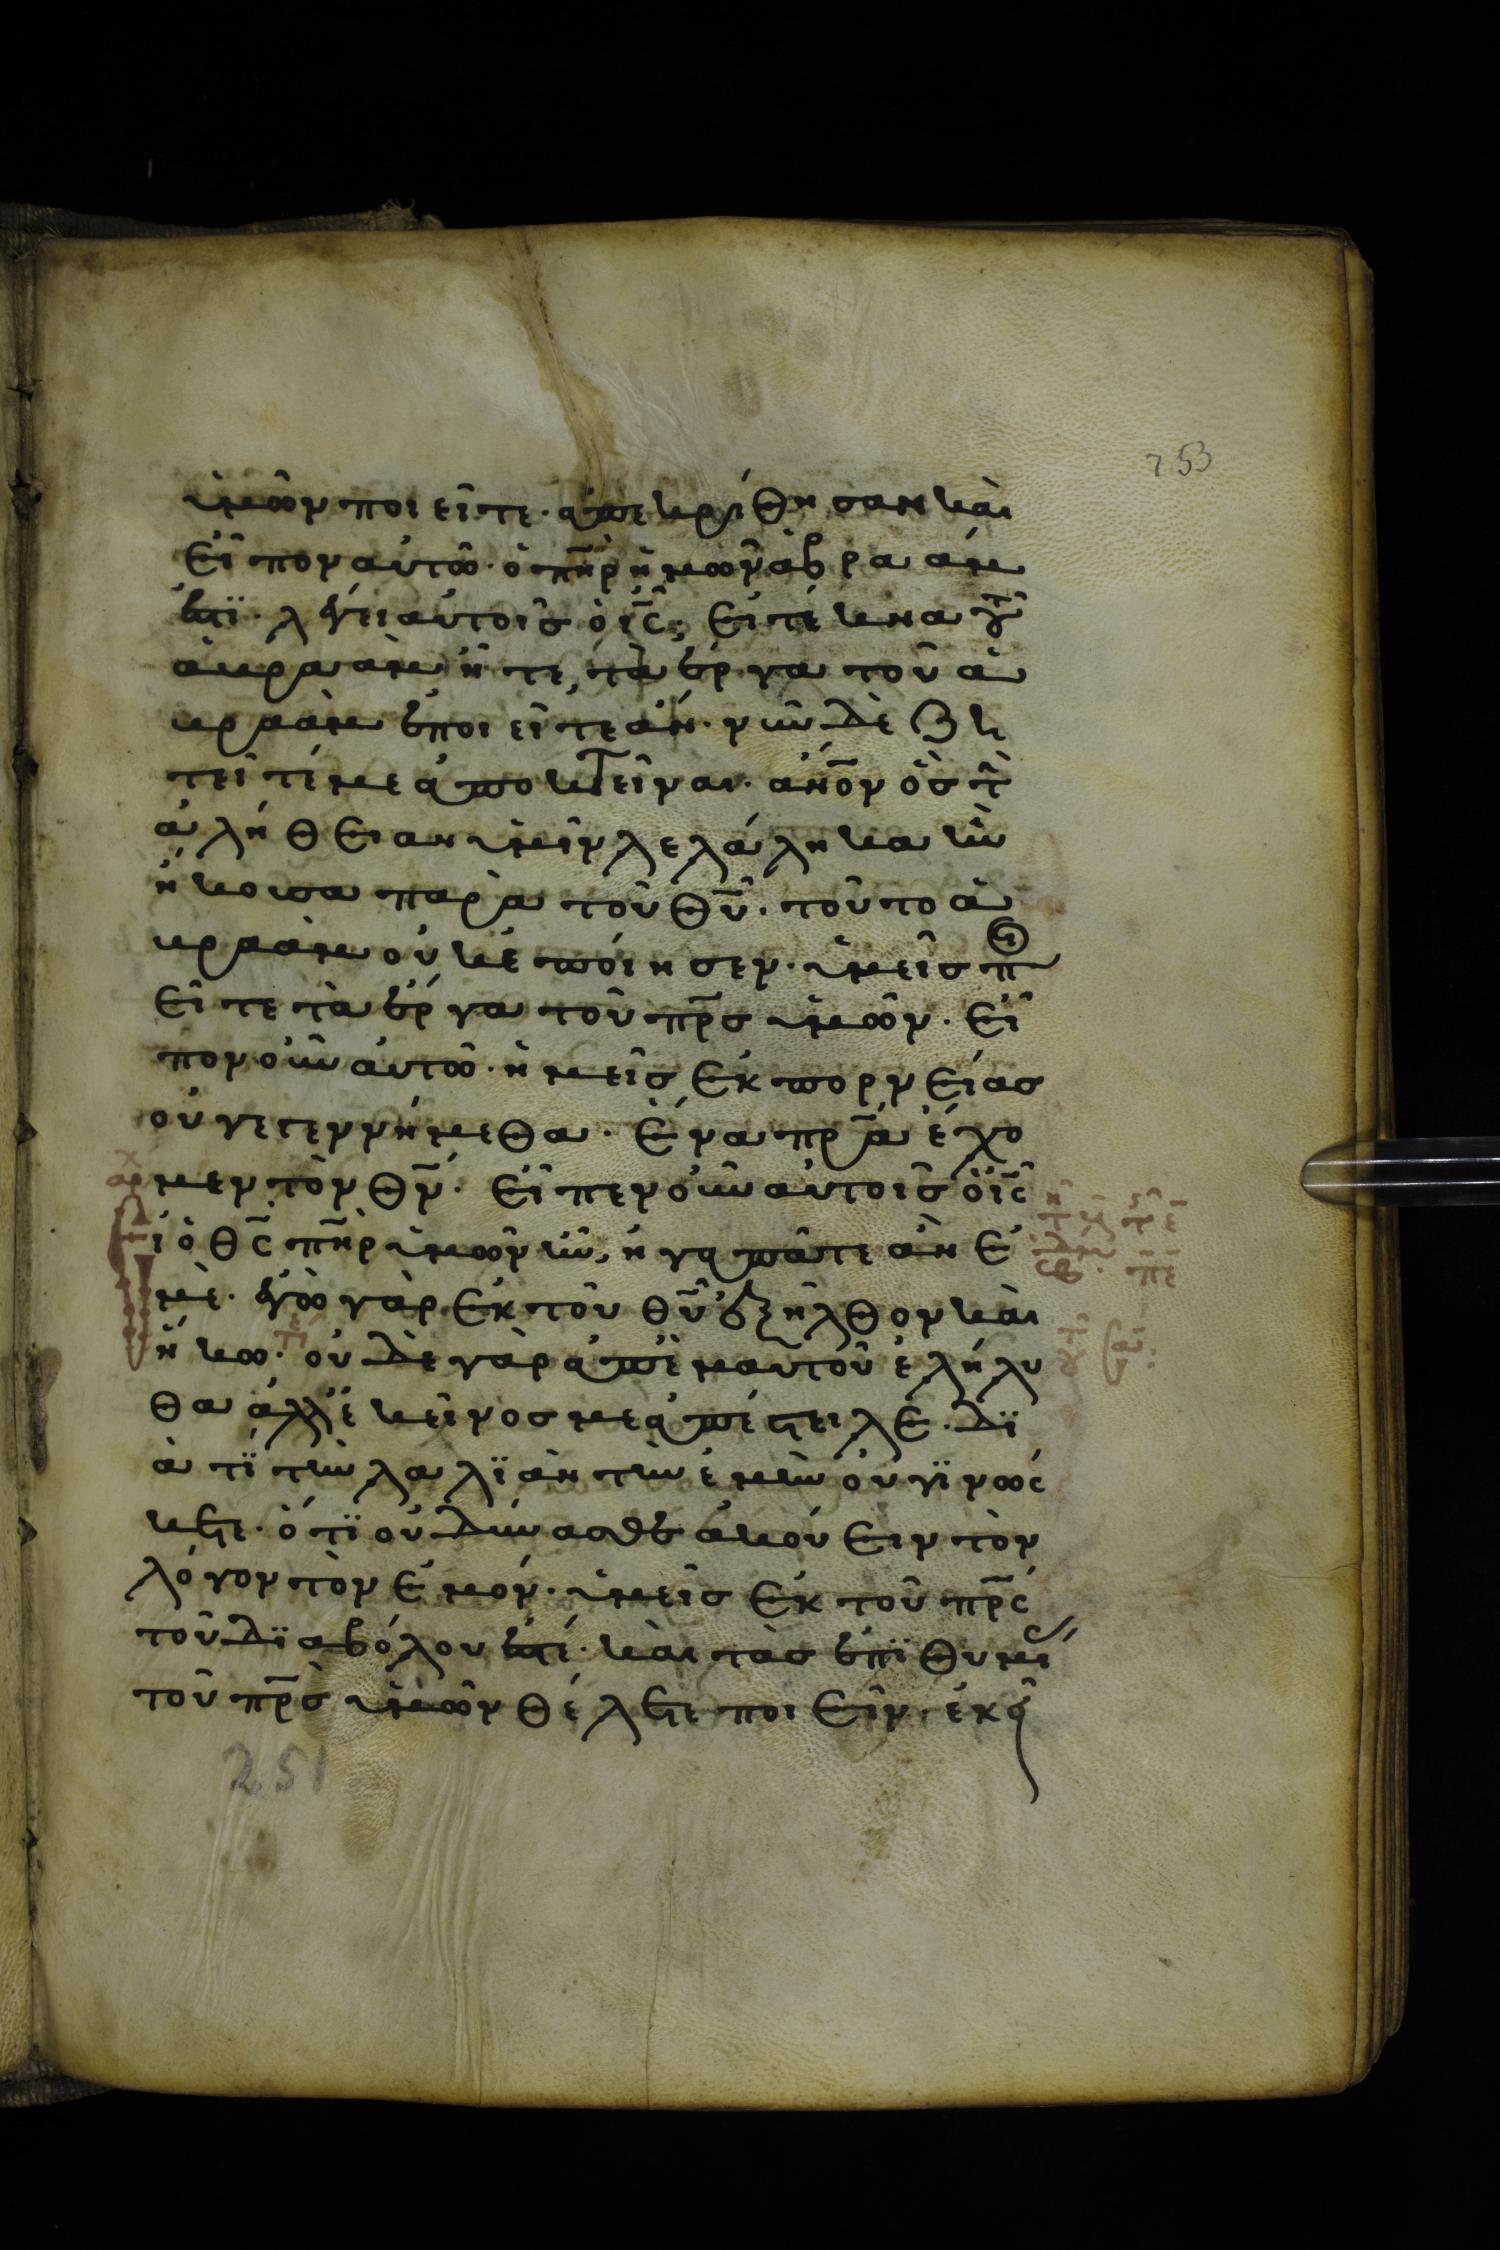 253
ὑμῶν ποιεῖτε· ἀπεκρίθησαν καὶ
εἶπον αὐτῶ· ὁ πη̅ρ ἡμῶν ἀβραάμ
ἐστϊ· λέγει αὐτοῖς ὁ ι̅ς̅· εἰ τέκνα τοῦ
ἀβραὰμ ἦτε, τὰ ἔργα τοῦ ἀ
βραὰμ ἐποιεῖτε ἄν· νῦν δὲ ζη
τεῖτέ με ἀποκτεῖναι· α̅ν̅ο̅ν ὃς τὴν
ἀλήθειαν ὑμῖν λελάληκα ἣν
ἤκουσα παρὰ τοῦ θ̅υ̅· τοῦτο ἀ
βραὰμ οὐκ ἐποίησεν· ὑμεῖς ποι
εῖτε τὰ ἔργα τοῦ π̅ρ̅ς ὑμῶν· εἶ
πον οὖν αὐτῶ· ἡμεῖς ἐκ πορνείας
οὐ γεγεννήμεθα· ἕνα π̅ρ̅α ἔχο
μεν τὸν θ̅ν̅· εἶπεν οὖν αὐτοῖς ὁ ι̅ς̅
αρχ
εἰ ὁ θ̅ς̅ π̅η̅ρ ὑμῶν ἦν, ἠγαπᾶτε ἂν ἐ
μέ· ἐγὼ γὰρ ἐκ τοῦ θ̅υ̅ ἐξῆλθον καὶ
ἥκω· οὐδὲ γὰρ ἀπ' ἐμαυτοῦ ἐλήλυ
θα ἀλλ' ἐκεῖνός με ἀπέστειλε· δϊ
ὰ τί τὴν λαλϊὰν τὴν ἐμὴν οὐ γϊνώς
κετε· ὅτϊ οὐ δύνασθε ἀκούειν τὸν
λόγον τὸν ἐμόν· ὑμεῖς ἐκ τοῦ π̅ρ̅ς
τοῦ δϊαβόλου ἐστέ· καὶ τὰς ἐπϊθυμίας
τοῦ π̅ρ̅ς ὑμῶν θέλετε ποιεῖν· ἐκεῖ
251